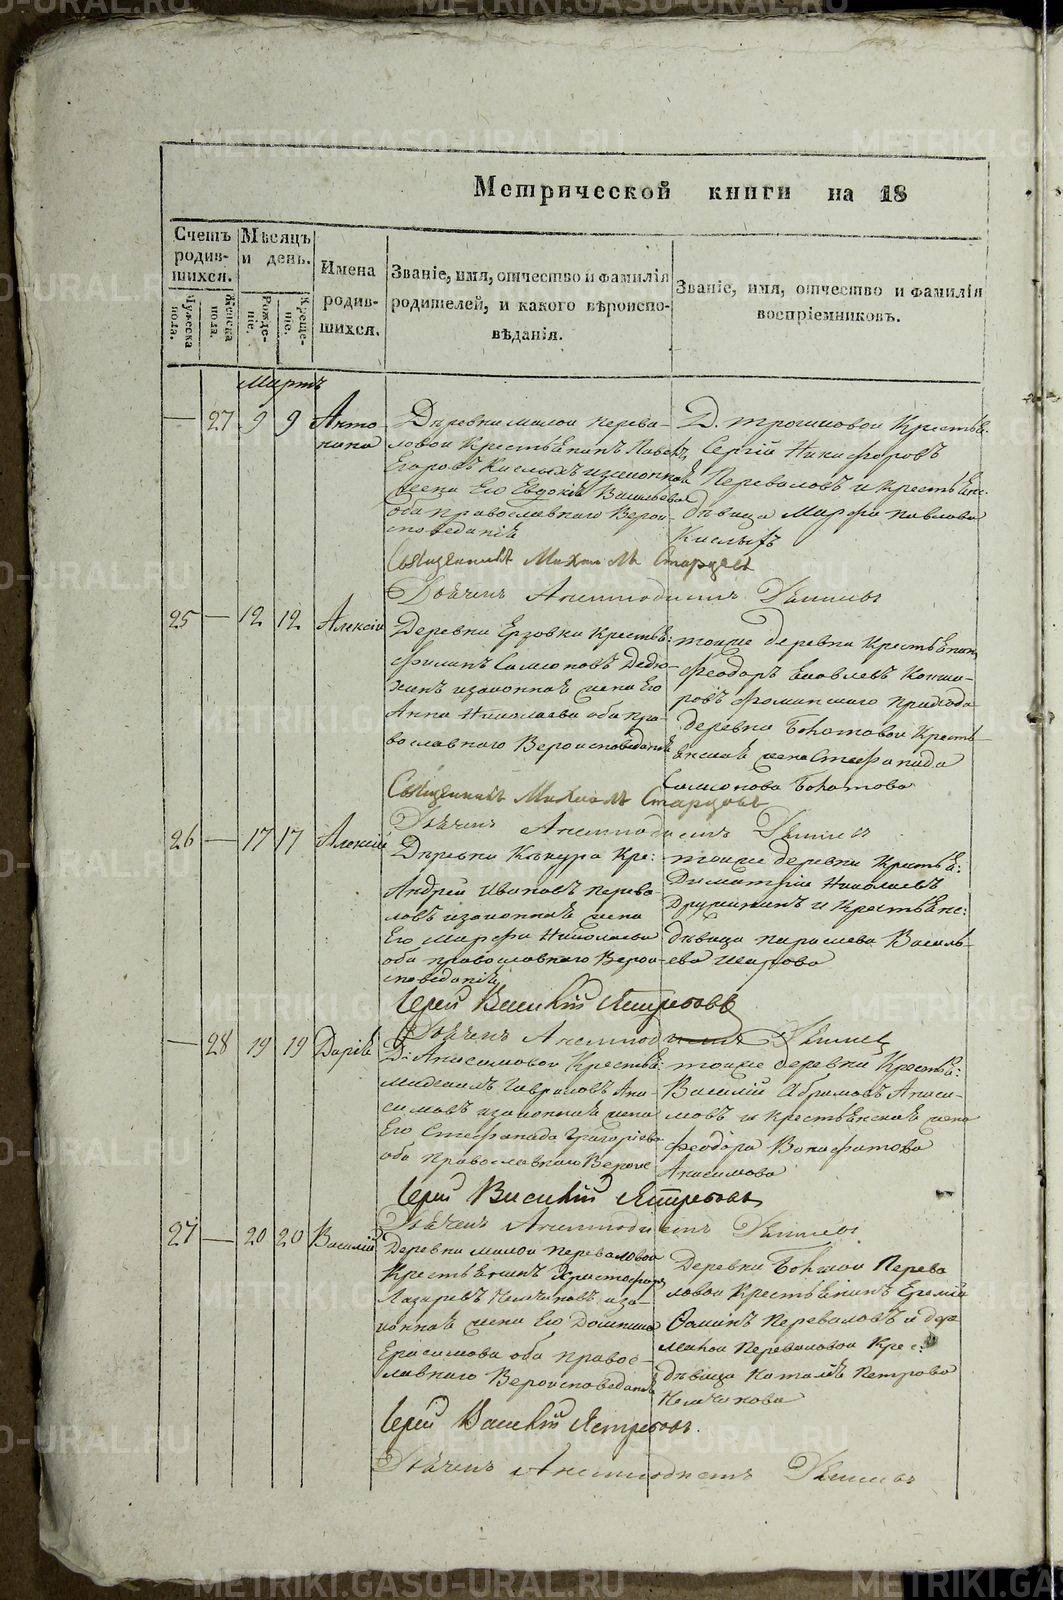 Метрической книги на 18
Счетъ родив-шихся.
Мѣсяцъ и день.
Имена родив-шихся.
Званіе, имя, отчество и фамилія родителей, и какого вѣроиспо-вѣданія.
Званіе, имя, отчество и фамилія воспріемниковъ.
Мужеска пола.
Женска пола.
Рожде-ніе.
Креще-ніе.
Мартъ
— 27 9 9 Анто
нина
Деревни малой перева-
ловой Крестьѣнинъ Павелъ
Егоровъ Кислыхъ изаконнаѣ
жена Его Евдокіѣ Васильева
оба православнаго Верои-
споведаніѣ
Д. трошковой Крестьѣ:
Сергій Никифоровъ
Переваловъ и Крестьѣнс:
дѣвица Марфа павлова
Кислыхъ
Свѣщенникъ Михаилъ Старцевъ
Дьячекъ
25 — 12 12 Алексій
Деревни Ерзовки Крестьѣ:
Филипъ Самсоновъ Дедю-
хинъ изаконнаѣ жена Его
Анна Николаева оба пра-
вославнаго Вероисповеданіѣ
тойже деревни Крестьѣнинъ
Феодоръ Яковлевъ
ровъ Фоминскаго прихода
деревни Бокотовой Кресть
ѣнскаѣ жена Стефанида
Самсонова Бокотова
Свѣщенникъ Михаилъ Старцовъ
Дьячекъ
26 — 17 17 Алексій
Деревни Кре:
Андрей Ивановъ перева
ловъ изаконнаѣ жена
Его Марфа Николаева
оба православнаго Верои-
споведаніѣ
тойже деревни Крестьѣ:
Димитрій Николаевъ
Дружининъ и Крестьѣнс:
дѣвица параскева Василь-
ева Шарова
Іерей Василій Ястребовъ
Дьячекъ
— 28 19 19 Даріѣ
Д: Анисимовой Крестьѣ:
Гавриловъ Ани-
симовъ изаконнаѣ жена
Его Стефанида Григоріева
оба православнаго Верои
тойже деревни Крестьѣ:
Василій Абрамовъ Аниси-
мовъ и Крестьѣнскаѣ жена
Феодора
Анисимова
Іерей Василій Ястребовъ
Дьячекъ
27 — 20 20 Василій
Деревни малой переваловой
Крестьѣнинъ Христофоръ
Лазаревъ иза-
коннаѣ жена Его Домника
Герасимова оба правос-
лавнаго Вероисповеданіѣ
Деревни Перева
ловой Крестьѣнинъ Еремій
Фоминъ Переваловъ и дер
малой Переваловой Крес:
дѣвица Наталіѣ Петрова
Іерей Василій Ястребовъ.
Дьячекъ
METRIKI.GASO-URAL.RU